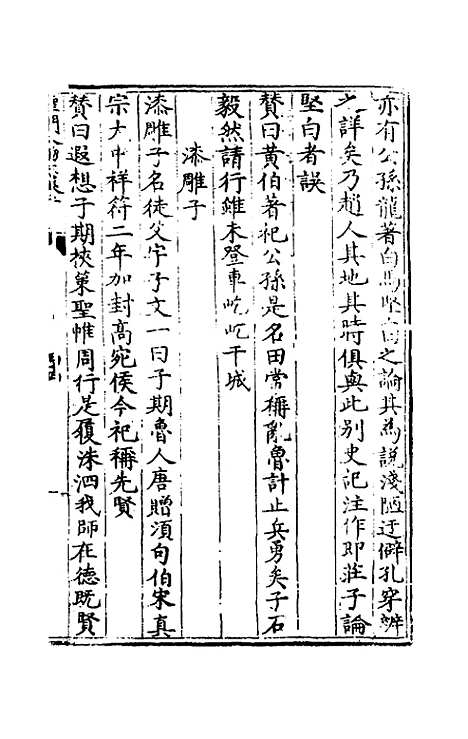 亦有公孫龍著白馬堅白之論其為說淺陋迂僻孔穿辨
之詳矣乃趙人其地其時俱與此別史記注作即莊子論
堅白者誤
贊曰黃伯著祀公孫是名田常稱亂魯計止兵勇矣子石
毅然請行雖未登車屹屹干城
漆雕子
漆雕子名徒父字子文一曰子期魯人唐贈須句伯宋真
宗大中祥符二年加封高宛侯今祀稱先賢
贊曰遐想子期挾策聖帷周行是履洙泗我師在德既賢